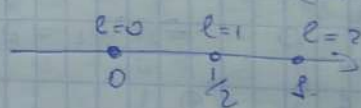 l=0 l=1 l=2
0 1/2 1